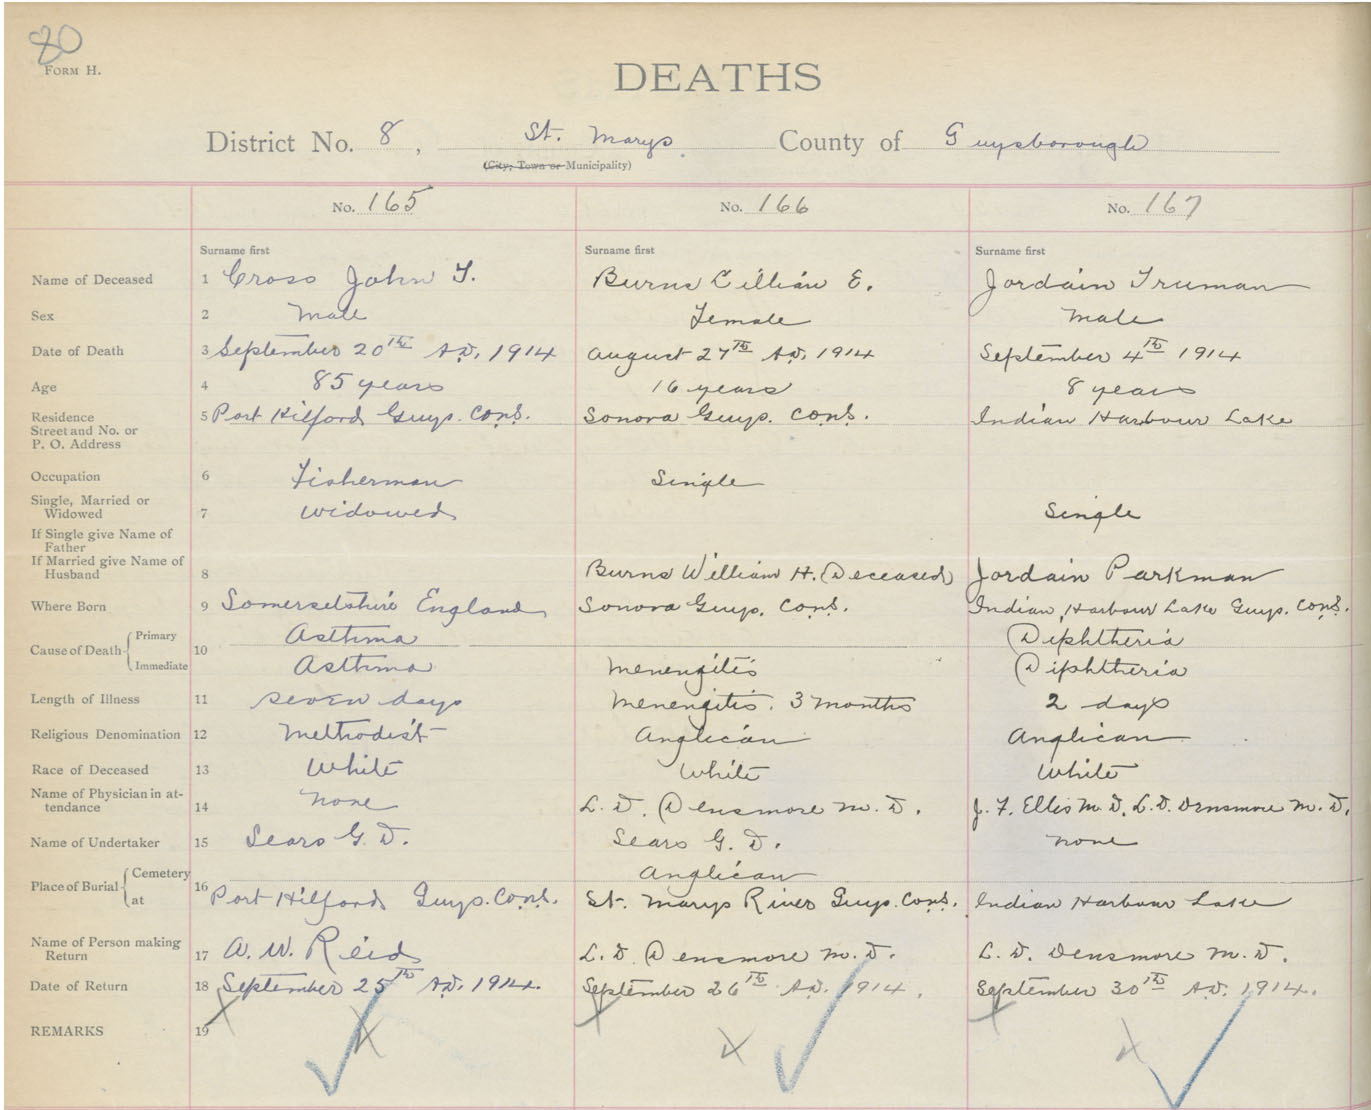 80
FORM H.
DEATHS
District No. 8, St. Marys County of Guysborough
(City, Town or Municipality)
No. 165 No. 166 No. 167
Surname first Surname first Surname first
Name of Deceased 1 Cross John T. Burns Lillian E. Jordain Truman
Sex 2 Male Female Male
Date of Death 3 September 20th A.D. 1914 August 27th A.D. 1914 September 4th 1914
Age 4 85 years 16 years 8 years
Residence
Street and No. or
P. O. Address
5 Port Hilford Guys. Cons. Sonora Guys. Cons. Indian Harbour Lake
Occupation 6 Fisherman Single
Single, Married or
Widowed 7 Widowed Single
If Single give Name of
Father
If Married give Name of
Husband 8 Burns William H. (Deceased) Jordain Parkman
Where Born 9 Somersetshire England Sonora Guys. Cons. Indian Harbour Lake Guys. Cons.
Cause of Death 10 Primary Asthma Diphtheria
Immediate Asthma Menengitis Diphtheria
Length of Illness 11 seven days Menengitis. 3 months 2 days
Religious Denomination 12 Methodist Anglican Anglican
Race of Deceased 13 White White White
Name of Physician in at-
tendance 14 none L. D. Densmore M. D. J. F. Ellis M. D. L. D. Densmore M. D.
Name of Undertaker 15 Sears G. D. Sears G. D. none
Place of Burial 16 Cemetery Anglican
at Port Hilford Guys. Cons. St. Marys River Guys. Cons. Indian Harbour Lake
Name of Person making
Return 17 A. W. Reid L. D. Densmore M. D. L. D. Densmore M. D.
Date of Return 18 September 25th A.D. 1914. September 26th A.D. 1914. September 30th A.D. 1914.
REMARKS 19